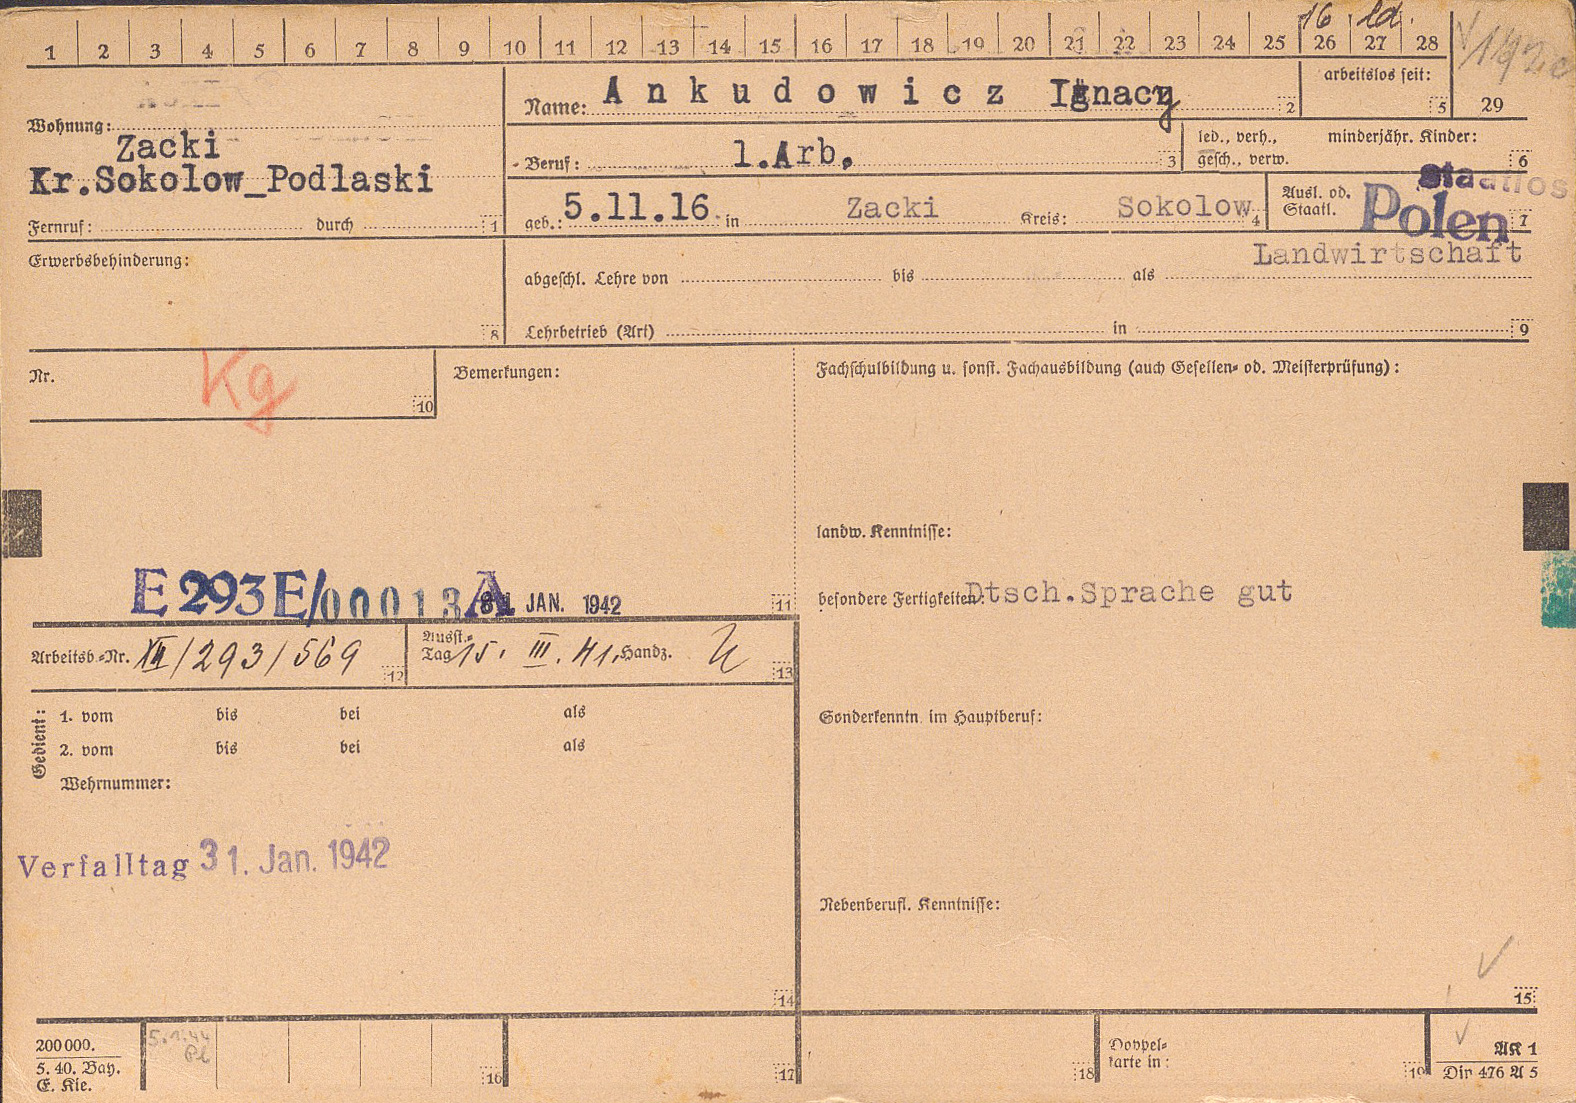 16 ld.
1 2 3 4 5 6 7 8 9 10 11 12 13 14 15 16 17 18 19 20 21 22 23 24 25 26 27 28
29
Name: Ankudowicz Ignacz 2
arbeitslos seit: 5
Wohnung:
Zacki
Kr.Sokolow_Podlaski
Fernruf: durch 1
Beruf: l.Arb. 3
led., verh., minderjähr. Kinder:
gesch., verw. 6
geb.: 5.11.16. in Zacki Kreis: Sokolow 4
Ausl. od.
Staatl.
Staatlos
Polen 7
Landwirtschaft
Erwerbsbehinderung: 8
abgeschl. Lehre von bis als
Lehrbetrieb (Art) in 9
Nr. Kg 10
Bemerkungen:
Fachschulbildung u. sonst. Fachausbildung (auch Gesellen- od. Meisterprüfung):
landw. Kenntnisse:
E 293 E/00013 A JAN. 1942 11
besondere Fertigkeiten: Dtsch.Sprache gut
Arbeitsb.-Nr. XII/293/569 12
Ausst.-
Tag 15. III. 41. Handz. 13
Gedient:
1. vom bis bei als
2. vom bis bei als
Wehrnummer:
Sonderkenntn. im Hauptberuf:
Verfalltag 31. Jan. 1942
Nebenberufl. Kenntnisse:
14
15
200000.
5. 40. Bay.
E. Kie.
5.1.44
16
17
18
Doppel-
karte in: 19
AK 1
Din 476 A 5